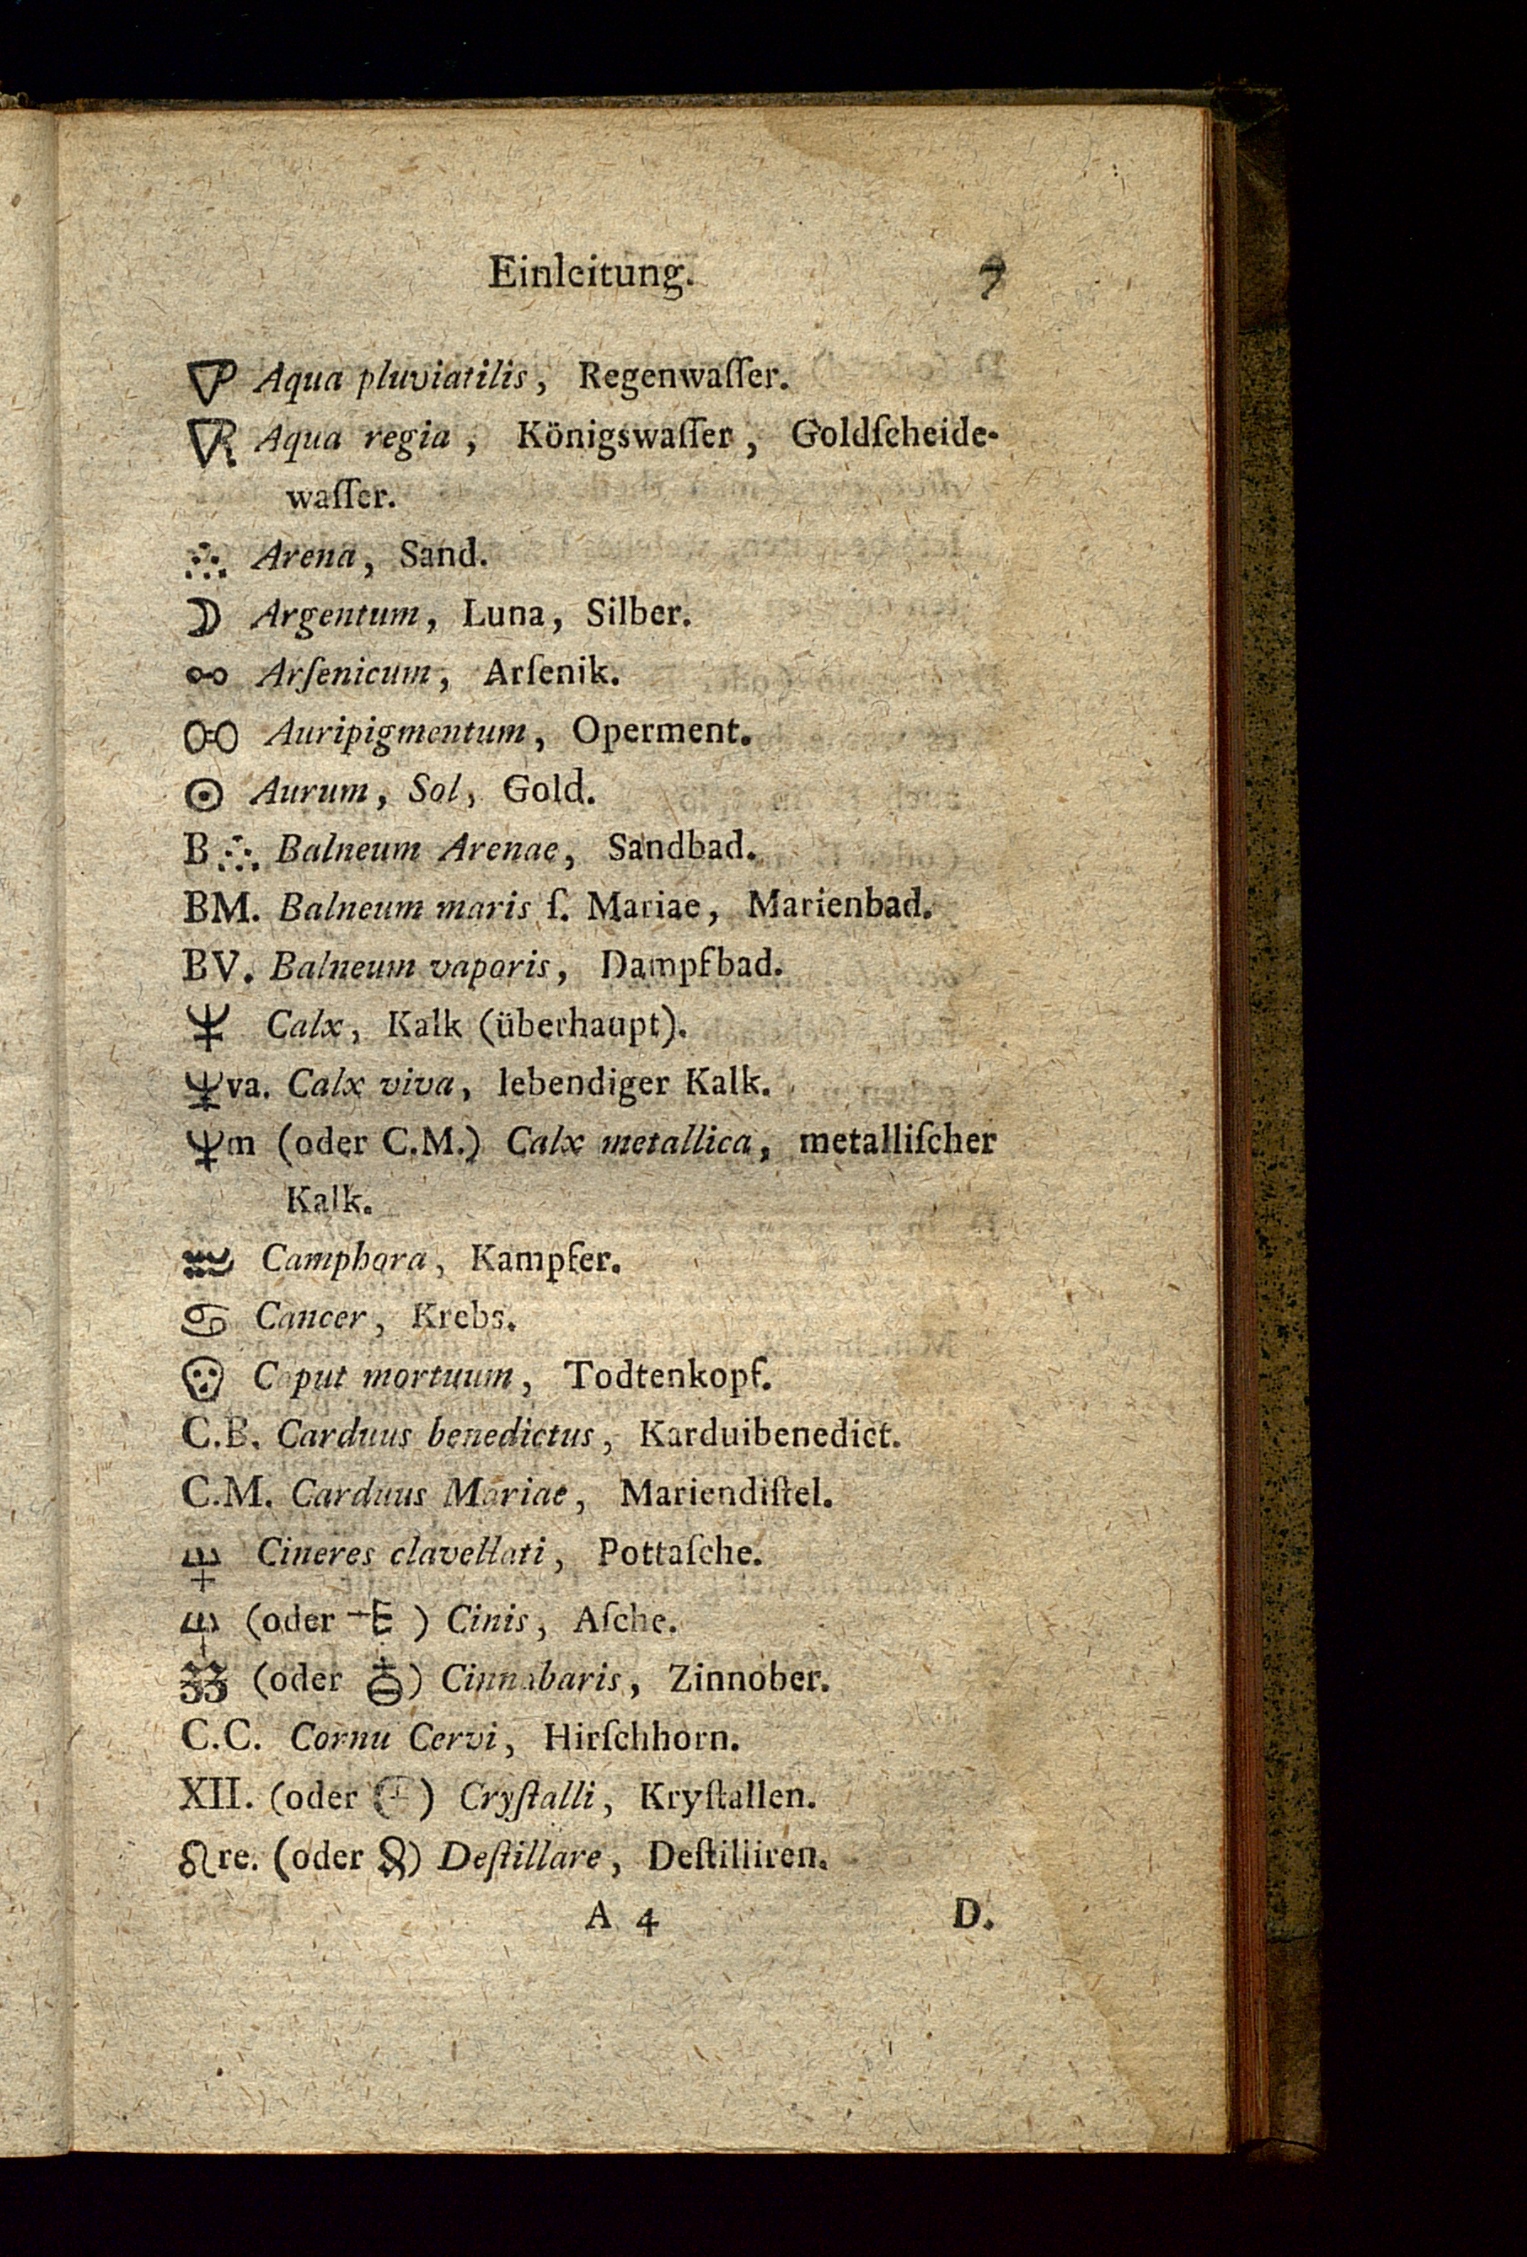 Einleitung. 7
🜄P Aqua pluviatilis, Regenwaſſer.
🜄R. Aqua regia, Königswaſſer, Goldſcheide-
waſſer.
Arena, Sand.
☽ Argentum, Luna, Silber.
Arſenicum, Arſenik.
Auripigmentum, Operment.
☉ Aurum, Sol, Gold.
B Balneum Arenae, Sandbad.
BM. Balneum maris ſ. Mariae, Marienbad.
BV. Balneum vaporis, Dampfbad.
♆ Calx, Kalk (überhaupt).
♆va. Calx viva, lebendiger Kalk.
♆m (oder C.M.) Calx metallica, metalliſcher
Kalk.
Camphora, Kampfer.
♋ Cancer, Krebs.
Caput mortuum, Todtenkopf.
C.B. Carduus benedictus, Karduibenedict.
C.M. Carduus Mariae, Mariendiſtel.
Cineres clavellati, Pottaſche.
(oder ) Cinis, Aſche.
(oder ) Cinnabaris, Zinnober.
C.C. Cornu Cervi, Hirſchhorn.
XII. (oder ) Cryſtalli, Kryſtallen.
♌re. (oder ) Deſtillare, Deſtilliren.
A 4 D.